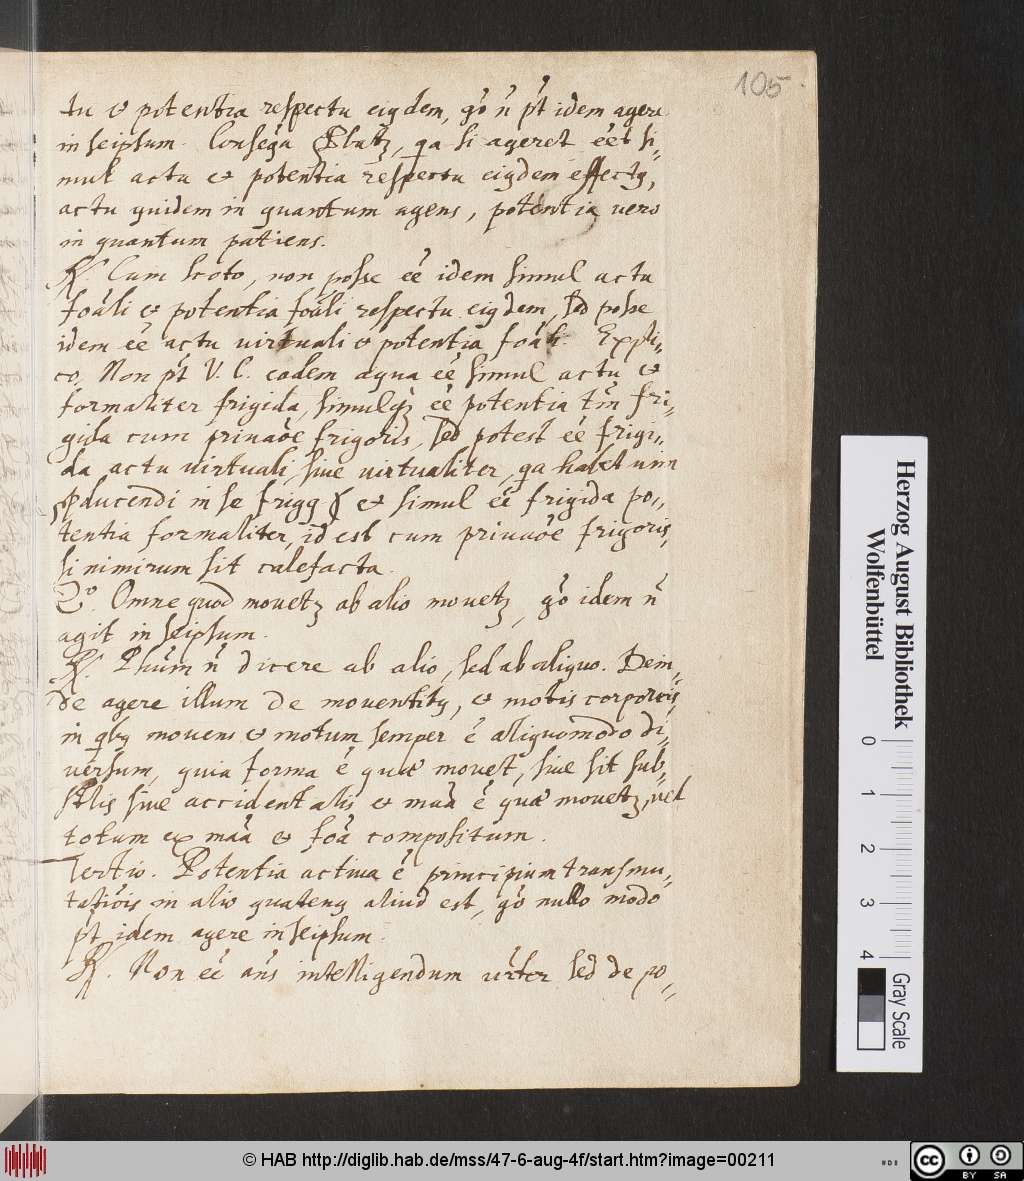 105
tu et potentia respectu eiꝰdem, gͦ ñ pt̃ idem agere
in seipsum. Conseq̃a ꝓbatꝫ, qa si ageret eẽt si„
mul actu et potentia respectu eiꝰdem effectꝰ,
actu quidem in quantum agens, potentia vero
in quantum patiens.
℟. Cum Scoto, non posse eẽ idem simul actu
foãli et potentia foãli respectu eiꝰdem, sed posse
idem eẽ actu uirtuali et potentia foãli. Expli„
co, Non pt̃ V. C. eadem aqua eẽ simul actu et
formaliter frigida, simulqꝫ eẽ potentia tm̃ fri„
gida cum priuaõe frigoris, sed potest eẽ frigi„
da actu uirtuali, siue uirtualiter, qa habet uim
ꝓducendi in se frigꝰ et simul eẽ frigida po„
tentia formaliter, id est cum priuaõe frigoris,
si nimirum sit calefacta.
2º. Omne quod mouetꝫ ab alio mouetꝫ, gͦ idem ñ
agit in seipsum.
℟. Phũm ñ dicere ab alio, sed ab aliquo. Dein„
de agere illum de mouentibꝰ, et motis corporeis,
in qibꝰ mouens et motum semper ẽ aliquomodo di„
uersum, quia forma ẽ quæ mouet, siue sit sub„
stãlis siue accidentalis et maã ẽ quæ mouetꝫ, uel
totum ex maã et foã compositum.
Tertio. Potentia actiua ẽ principium transmu„
tatiõis in alio quatenꝰ aliud est, gͦ nullo modo
pt̃ idem agere in seipsum.
℟. Non eẽ añs intelligendum ur̃ter sed de po„
Herzog August Bibliothek
Wolfenbüttel
0 1 2 3 4
Gray Scale
© HAB http://diglib.hab.de/mss/47-6-aug-4f/start.htm?image=00211
cc BY SA